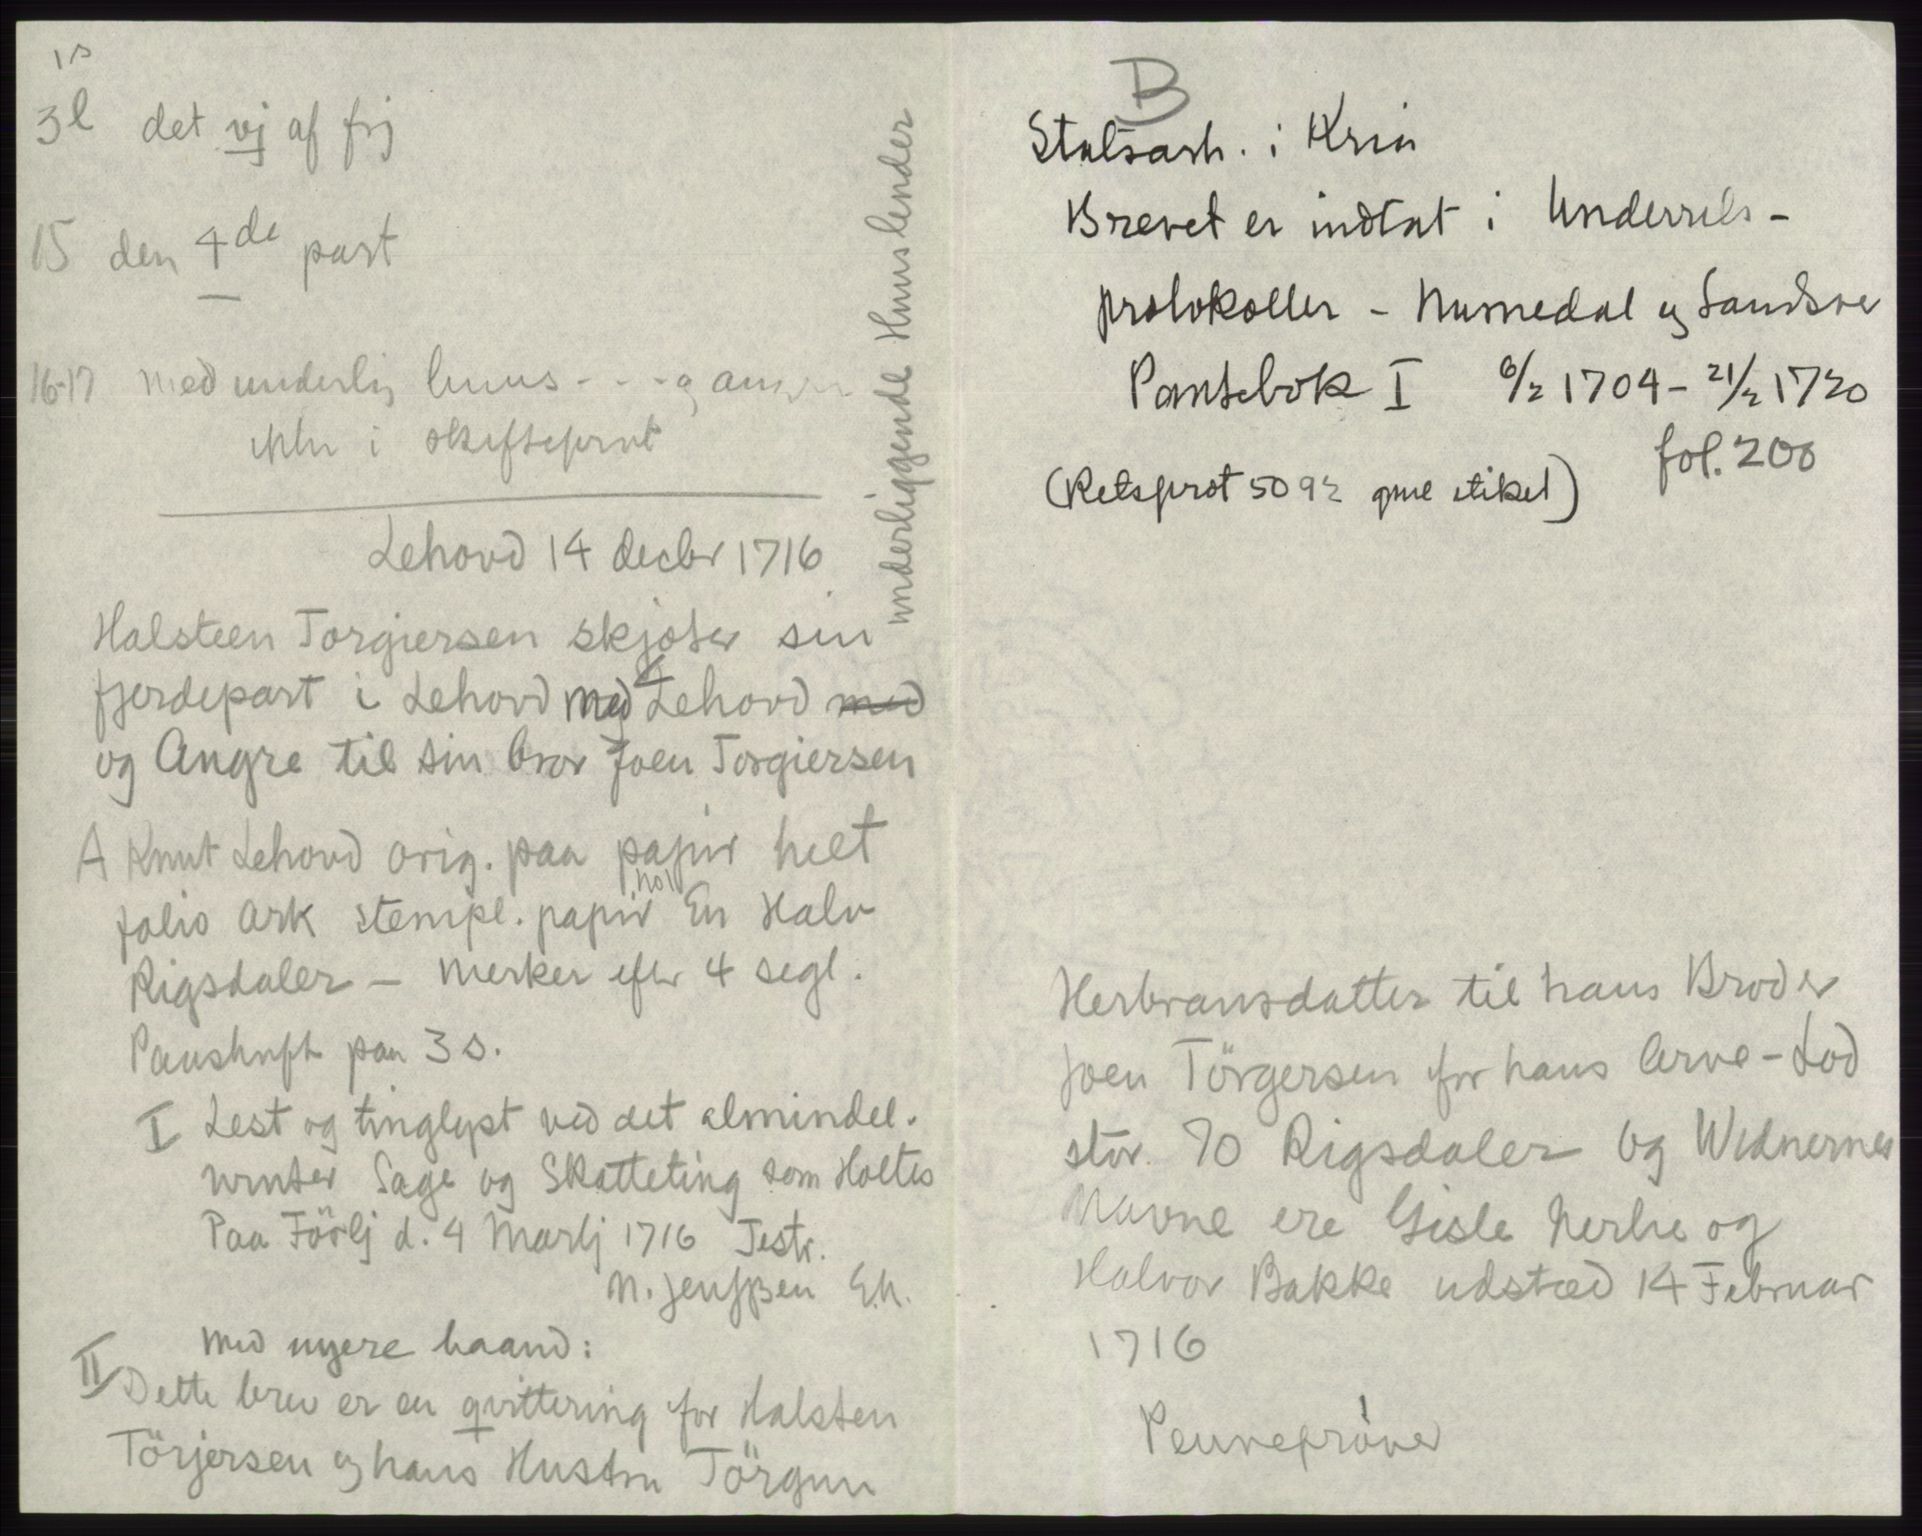 1s
3l det vj af frj
15 den 4de part
16-17 med underlig huus - - - og
ikke i skifteprot
underliggende Huuslender
Lehovd 14 decbr 1716
Halsteen Torgiersen skjøter sin
fjerdepart i Lehovd med Lehovd med
og Angre til sin bror Joen Torgiersen
A Knut Lehovd orig. paa papir helt
folio ark stempl. papir No 1 En Halv
Rigsdaler – Merker efter 4 segl.
Paaskrift paa 3 s.
I Lest og tinglyst ved det almindel.
winter Sage og Skatteting som Holtes
Paa Förlj d. 4 Martj 1716 Testr.
N. Jenssen E.h.
med nyere haand:
II Dette brev er en qvittering for Halsten
Törjersen og hans Hustru Törgun
B
Statsark. i Kria
Brevet er indtat i Underrets-
protokoller – Numedal og Sandsvær
Pantebok I 6/2 1704 – 21/2 1720
fol. 200
(Retsprot 5092 gml etiket)
Herbransdatter til hans Broder
Joen Törgersen for hans Arve-Lod
stor 70 Rigsdaler og Widnernes
Navne ere Gisle Nerbe og
Halvor Bakke udstæd 14 Februar
1716
Penneprøver